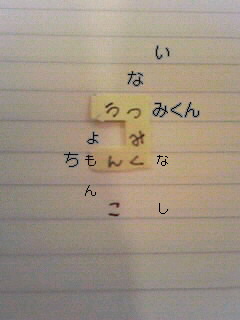 い
な
うつみくん
よ み
ちもんくな
ん
こ し